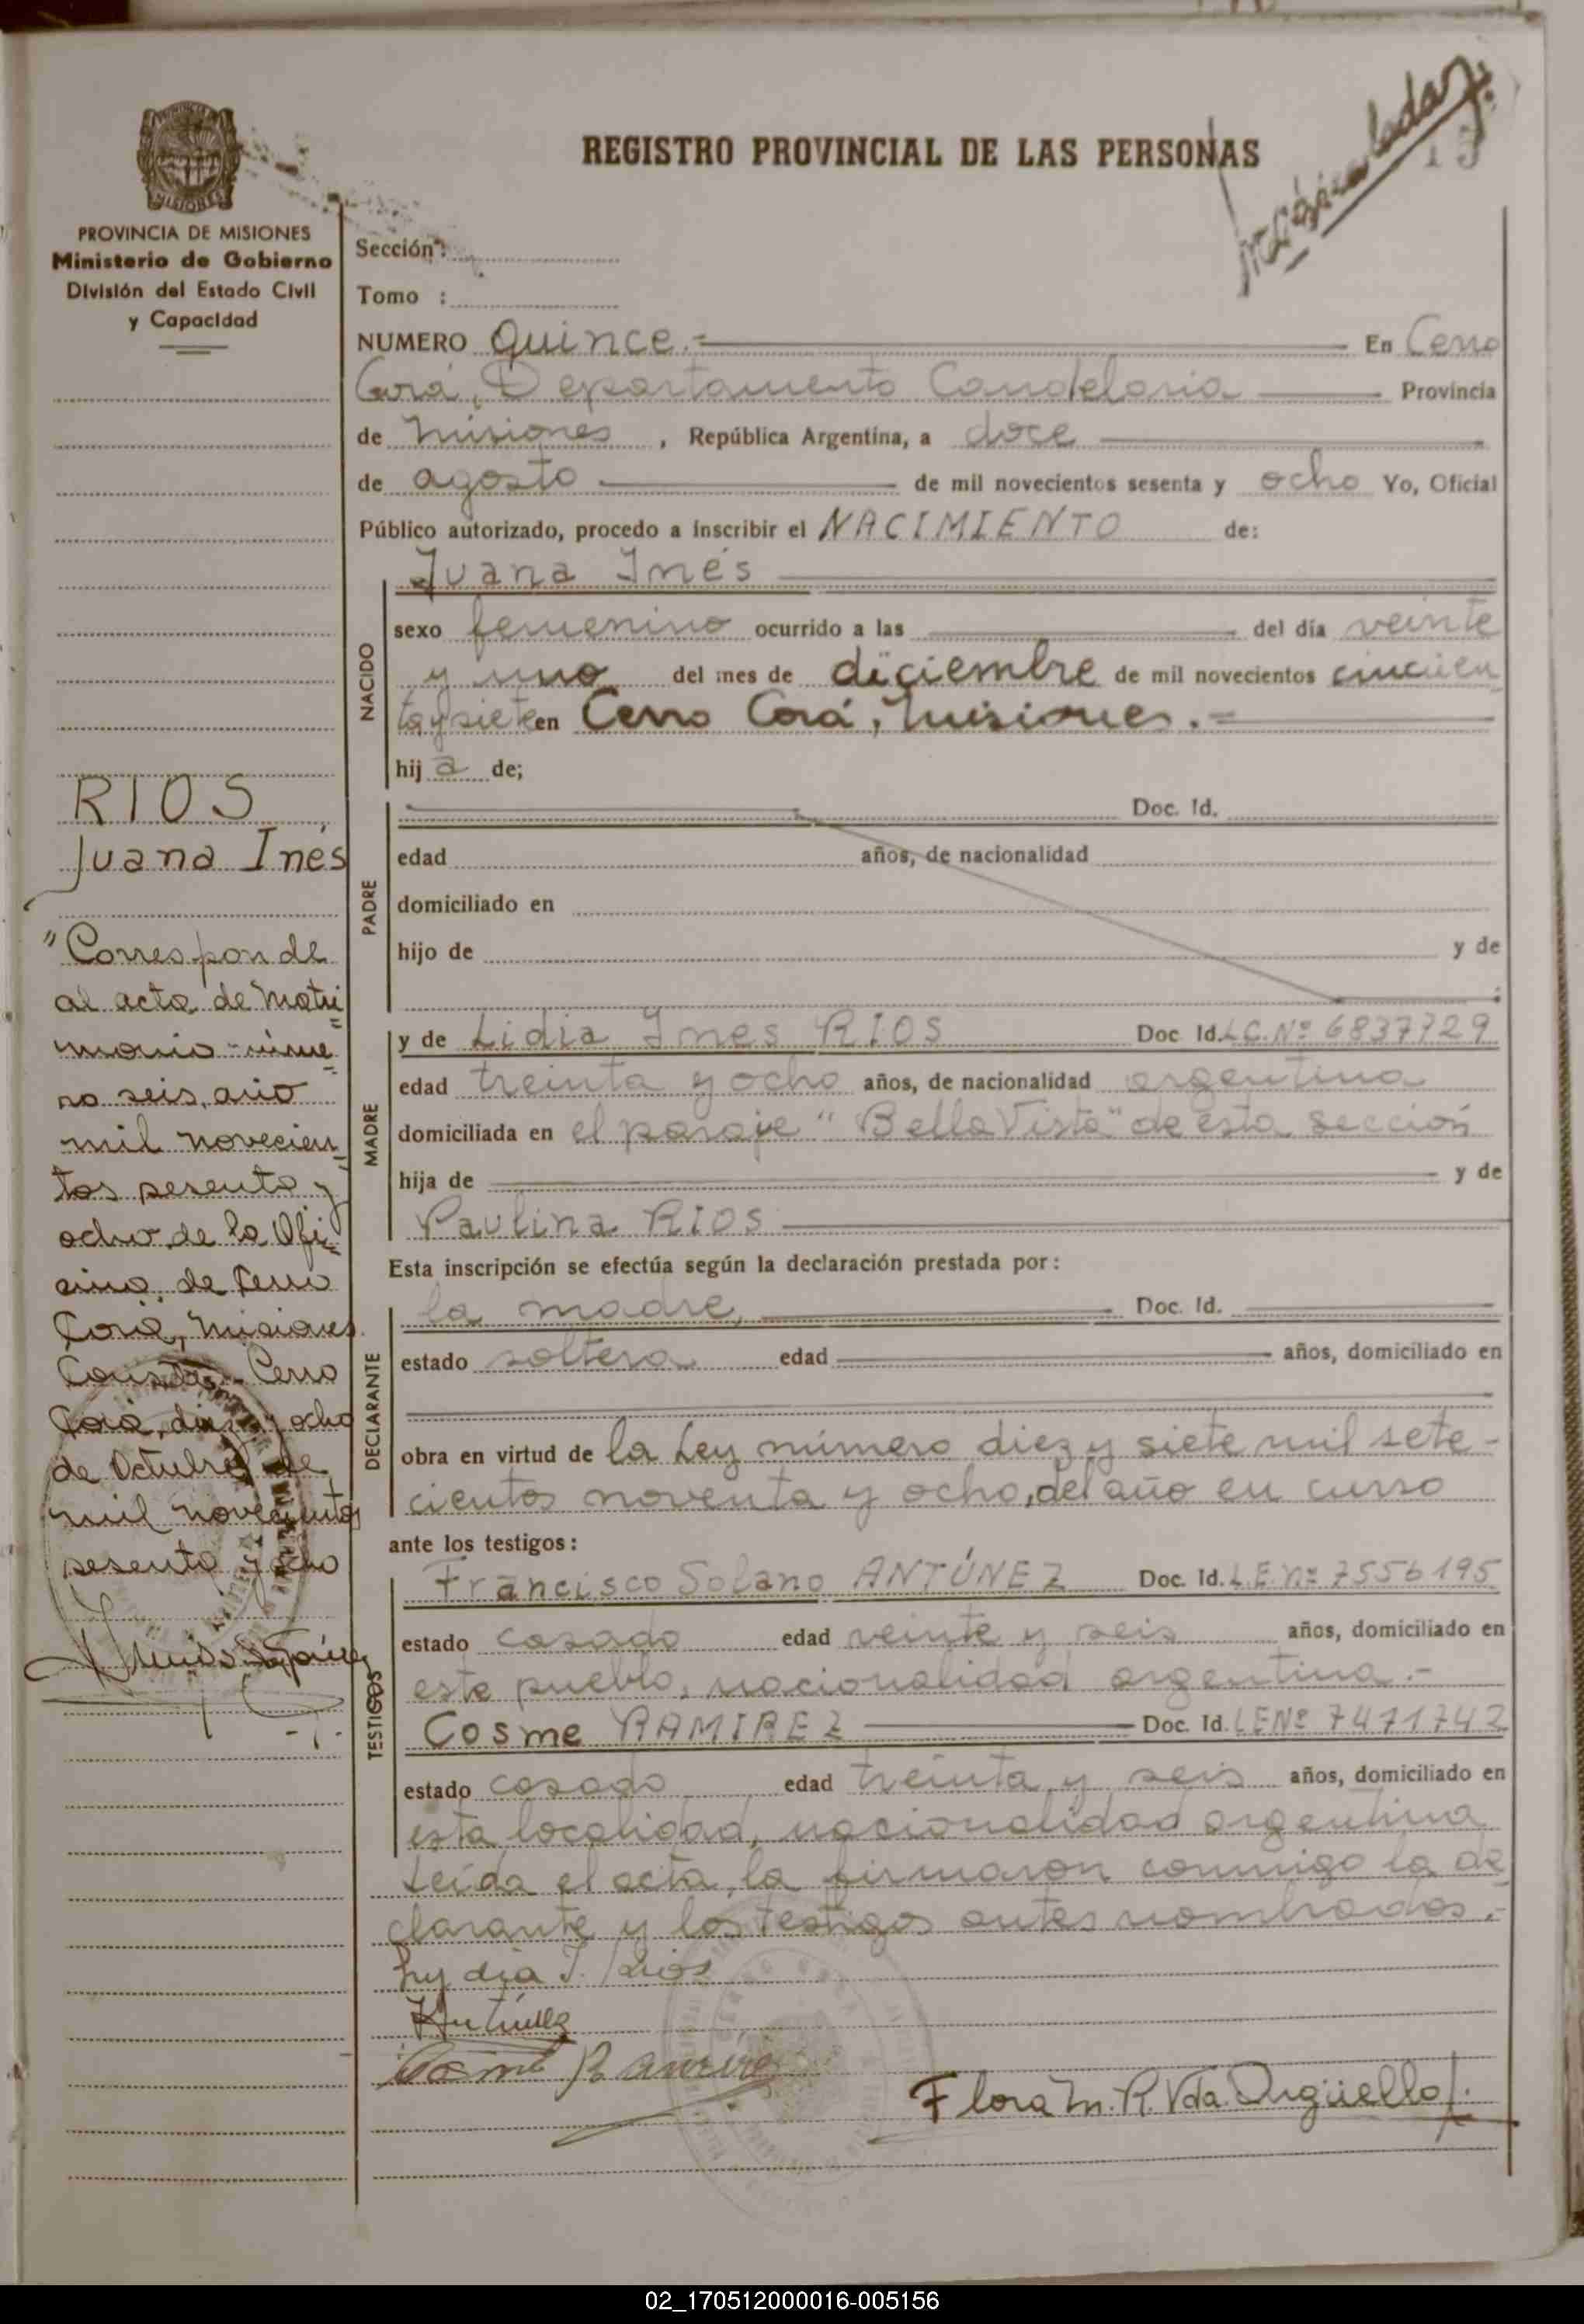 REGISTRO PROVINCIAL DE LAS PERSONAS
PROVINCIA DE MISIONES
Ministerio de Gobierno
División del Estado Civil
y Capacidad
RIOS
Juana Inés
"Corresponde
al acta de Matri=
monio núme=
ro seis, año
mil novecien=
tos sesenta y
ocho de la Ofi=
cina de Cerro
Corá, Misiones.
Consta. Cerro
Corá, diez y ocho
de Octubre de
mil novecientos
sesenta y ocho
Sección:
Tomo :
NUMERO Quince.- En Cerro
Corá, Departamento Candelaria Provincia
de Misiones, República Argentina, a doce
de agosto de mil novecientos sesenta y ocho Yo, Oficial
Público autorizado, procedo a inscribir el NACIMIENTO de:
Juana Inés
NACIDO
sexo femenino ocurrido a las del día veinte
y uno del mes de diciembre de mil novecientos cincuen
ta y siete en Cerro Corá, Misiones.=
hija de;
PADRE
Doc. Id.
edad años, de nacionalidad
domiciliado en
hijo de y de
MADRE
y de Lidia Ines RIOS Doc Id. L.C. Nº 6837729
edad treinta y ocho años, de nacionalidad argentina
domiciliada en el paraje "Bella Vista" de esta sección
hija de y de
Paulina RIOS
Esta inscripción se efectúa según la declaración prestada por:
DECLARANTE
la madre, Doc. Id.
estado soltera edad años, domiciliado en
obra en virtud de la Ley número diez y siete mil sete-
cientos noventa y ocho, del año en curso
ante los testigos:
TESTIGOS
Francisco Solano ANTÚNEZ Doc. Id. L.E. Nº 7556195
estado casado edad veinte y seis años, domiciliado en
este pueblo, nacionalidad argentina.-
Cosme RAMIREZ Doc. Id. LE Nº 7471742
estado casado edad treinta y seis años, domiciliado en
esta localidad, nacionalidad argentina
Leída el acta, la firmaron conmigo la de
clarante y los testigos antes nombrados.-
Lydia I. Rios
Antúnez
Cosme Ramirez
Flora M. R. Vda. Argüello
02_170512000016-005156